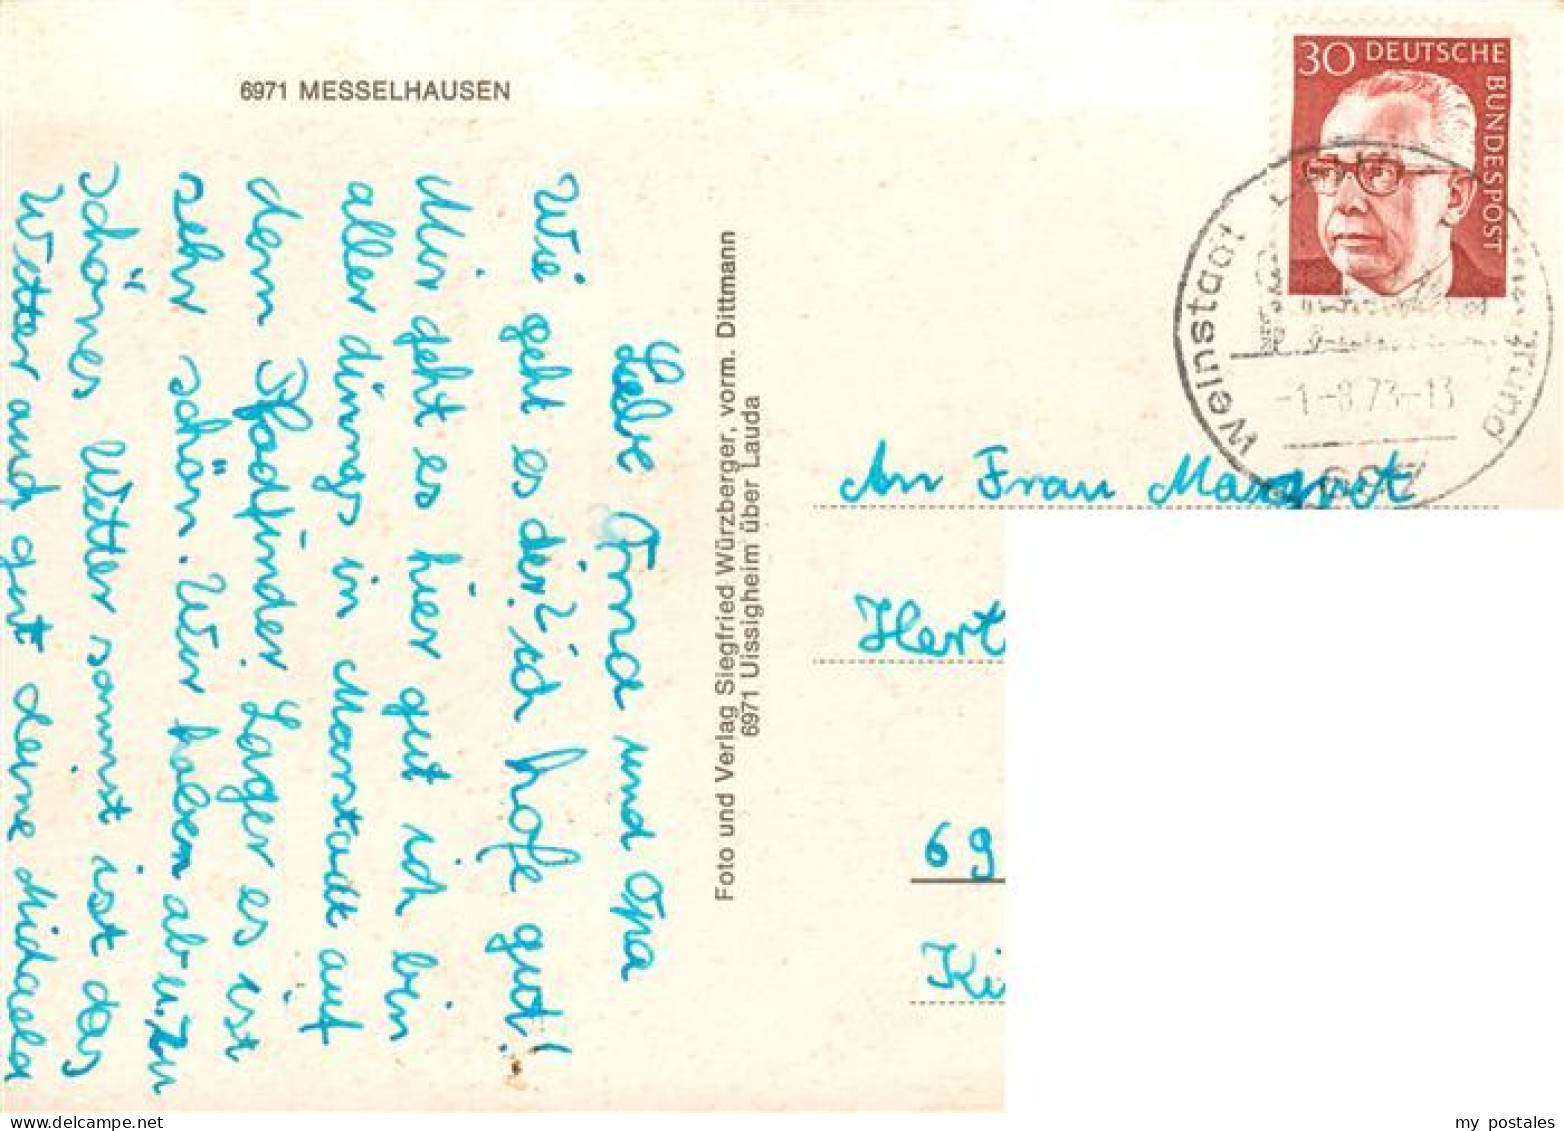 6971 MESSELHAUSEN
Liebe Oma und Opa
Wie geht es dir? ich hofe gut!
Mir geht es hier gut ich bin
aller dings in Marstadt auf
dem Pfadfinder Lager es ist
sehr schön. Wir haben ab u. zu
schönes Wetter sonnst ist das
Wetter auch gut deine Michaela
Foto und Verlag Siegfried Würzberger, vorm. Dittmann
6971 Uissigheim über Lauda
30 DEUTSCHE
BUNDESPOST
Weinstadt
-1.-8.73-13
An Frau Margret
Hert
69
Ki
my postales